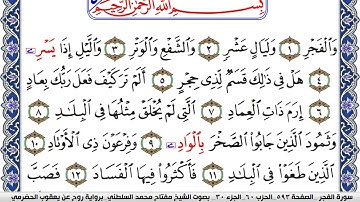 بِسْمِ اللَّهِ الرَّحْمَٰنِ الرَّحِيمِ
وَالْفَجْرِ ١ وَلَيَالٍ عَشْرٍ ٢ وَالشَّفْعِ وَالْوَتْرِ ٣ وَاللَّيْلِ إِذَا يَسْرِۦ
٤ هَلْ فِي ذَٰلِكَ قَسَمٌ لِّذِي حِجْرٍ ٥ أَلَمْ تَرَ كَيْفَ فَعَلَ رَبُّكَ بِعَادٍ
٦ إِرَمَ ذَاتِ الْعِمَادِ ٧ الَّتِي لَمْ يُخْلَقْ مِثْلُهَا فِي الْبِلَٰدِ ٨
وَثَمُودَ الَّذِينَ جَابُوا الصَّخْرَ بِالْوَادِۦ ٩ وَفِرْعَوْنَ ذِي الْأَوْتَادِ ١٠
الَّذِينَ طَغَوْا فِي الْبِلَٰدِ ١١ فَأَكْثَرُوا فِيهَا الْفَسَادَ ١٢ فَصَبَّ
سورة الفجر _ الصفحة ٥٩٣ _ الحزب ٦٠ _ الجزء ٣٠ _ بصوت الشيخ مفتاح محمد السلطني _ برواية روح عن يعقوب الحضرمي